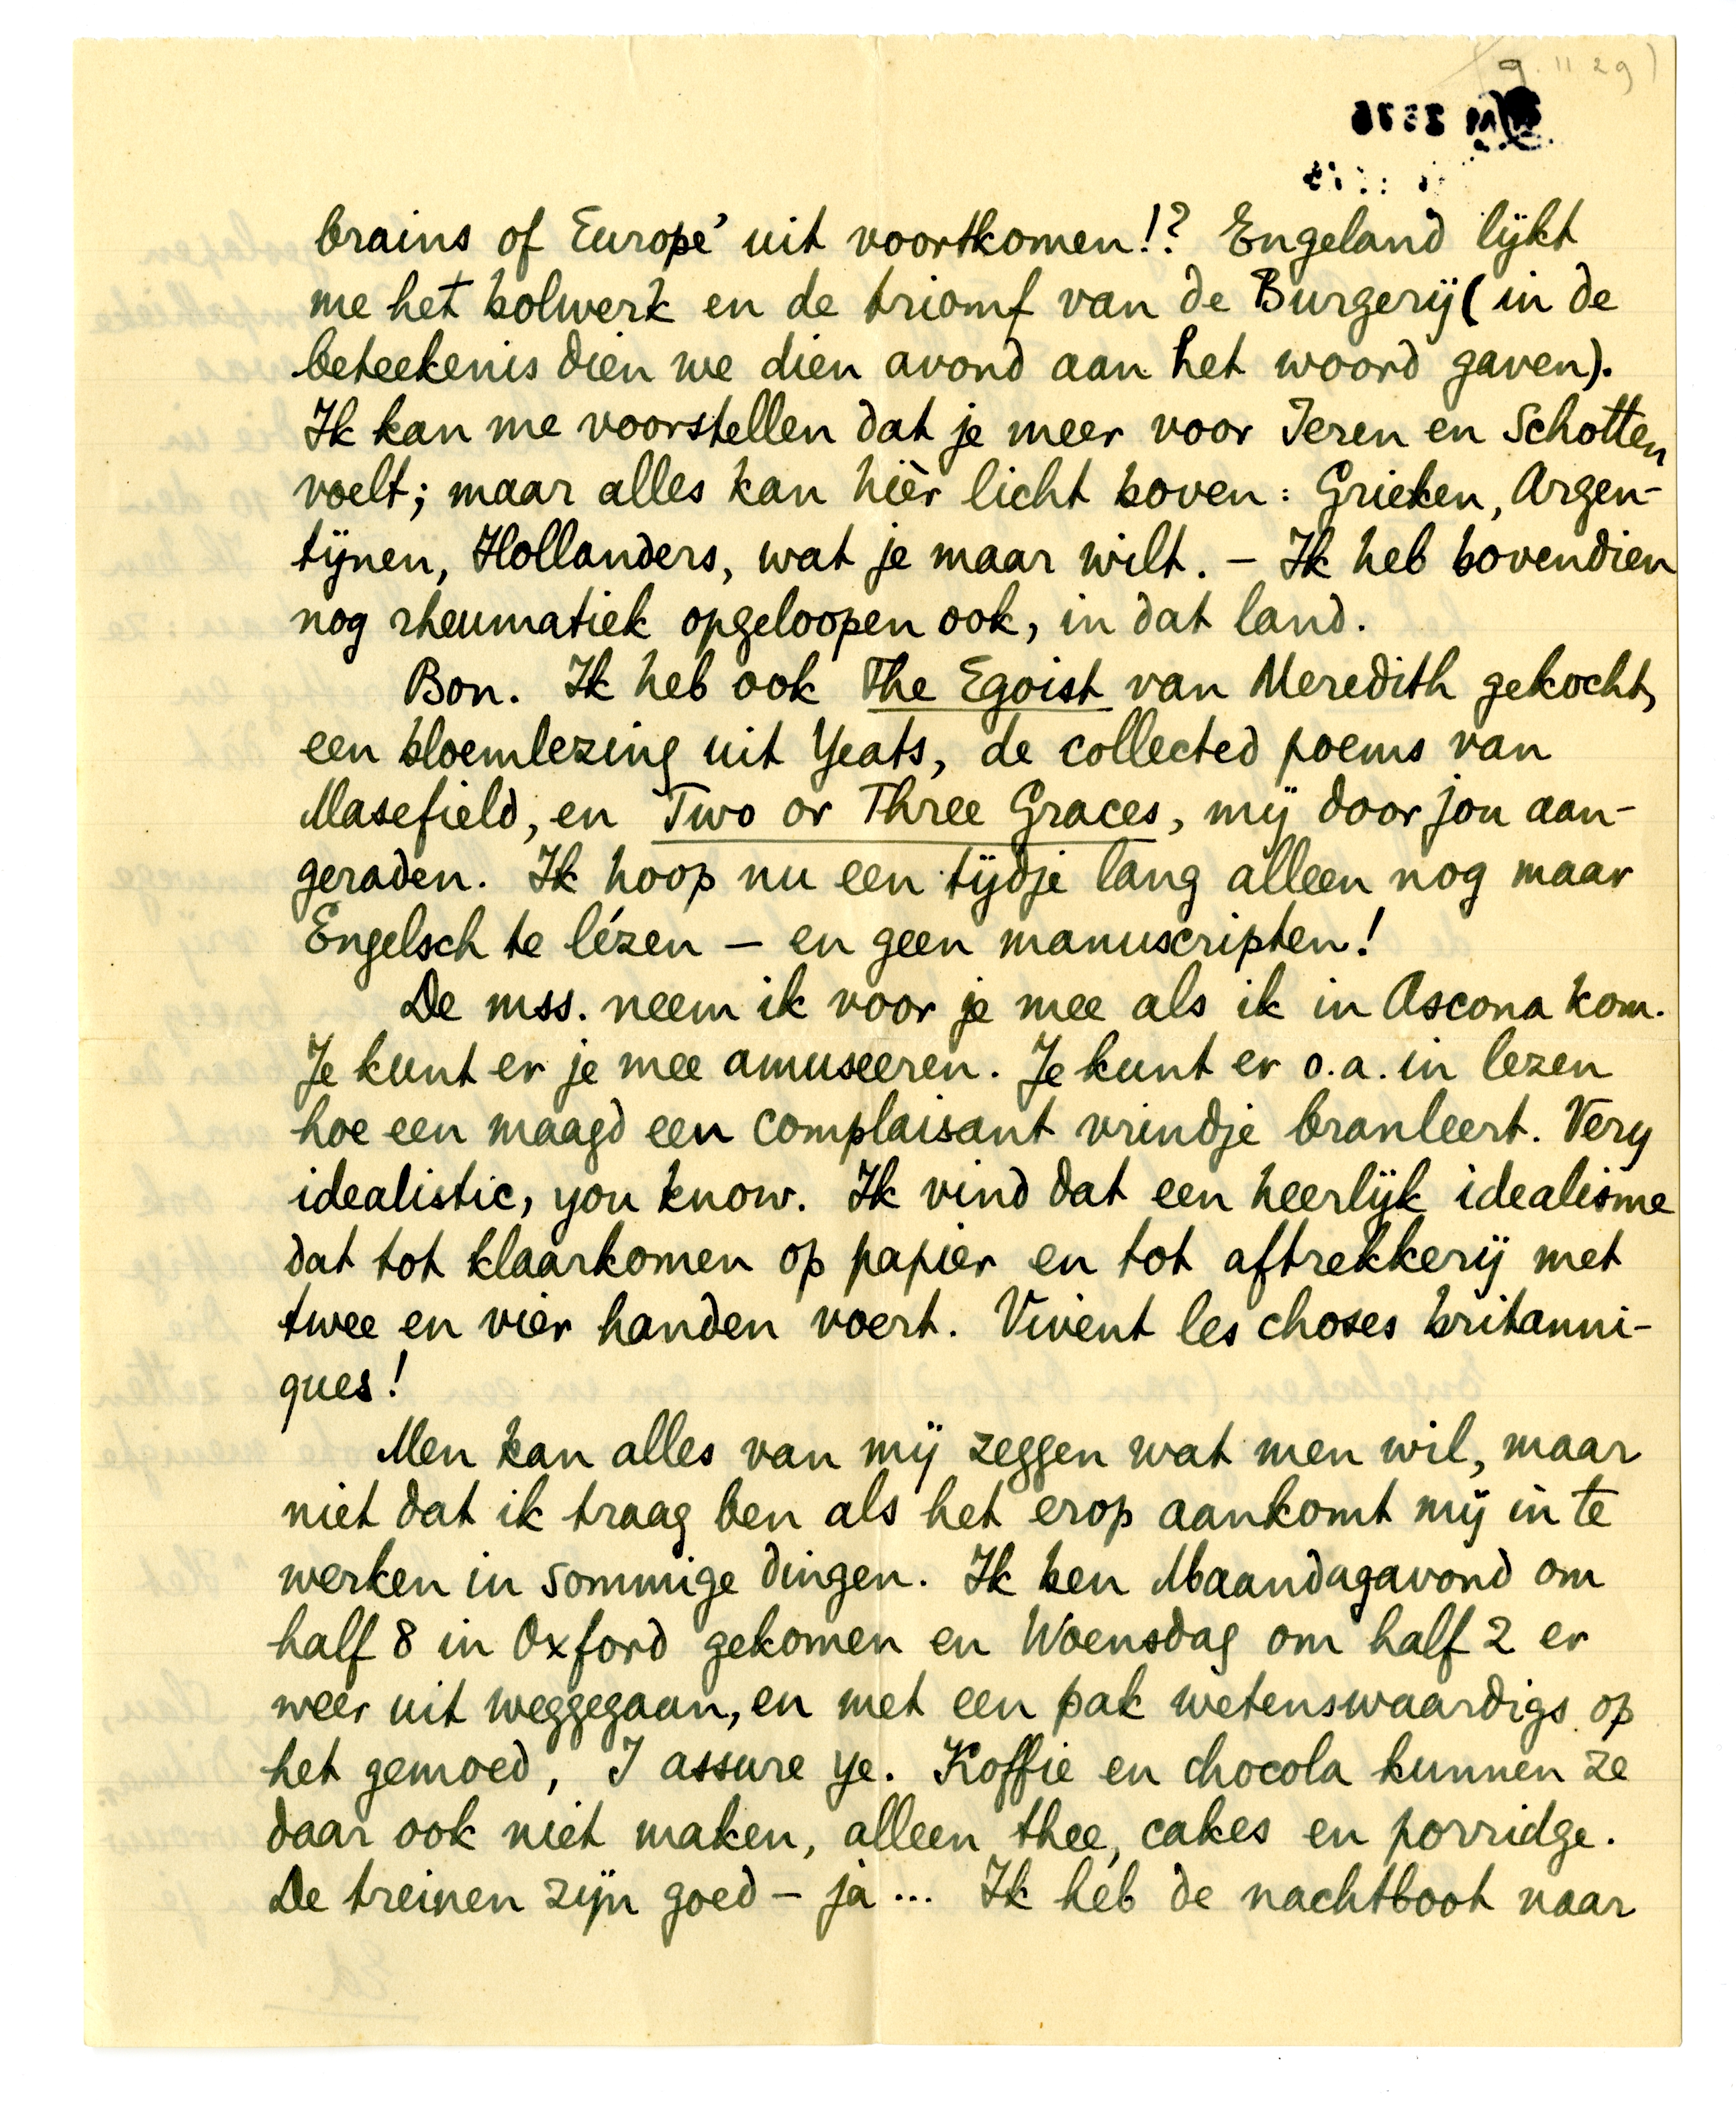 (9.11 29)
brains of Europe' uit voortkomen!? Engeland lijkt
me het bolwerk en de triomf van de Burgerij (in de
beteekenis dien we dien avond aan het woord gaven).
Ik kan me voorstellen dat je meer voor Ieren en Schotten
voelt; maar alles kan hièr licht boven: Grieken, Argen-
tijnen, Hollanders, wat je maar wilt. – Ik heb bovendien
nog rheumatiek opgeloopen ook, in dat land.
Bon. Ik heb ook The Egoist van Meredith gekocht,
een bloemlezing uit Yeats, de collected poems van
Masefield, en Two or Three Graces, mij door jou aan-
geraden. Ik hoop nu een tijdje lang alleen nog maar
Engelsch te lézen – en geen manuscripten!
De mss. neem ik voor je mee als ik in Ascona kom.
Je kunt er je mee amuseeren. Je kunt er o.a. in lezen
hoe een maagd een complaisant vrindje branleert. Very
idealistic, you know. Ik vind dat een heerlijk idealisme
dat tot klaarkomen op papier en tot aftrekkerij met
twee en vier handen voert. Vivent les choses britanni-
ques!
Men kan alles van mij zeggen wat men wil, maar
niet dat ik traag ben als het erop aankomt mij in te
werken in sommige dingen. Ik ben Maandagavond om
half 8 in Oxford gekomen en Woensdag om half 2 er
weer uit weggegaan, en met een pak wetenswaardigs op
het gemoed, I assure ye. Koffie en chocola kunnen ze
daar ook niet maken, alleen thee, cakes en porridge.
De treinen zijn goed – ja ... Ik heb de nachtboot naar